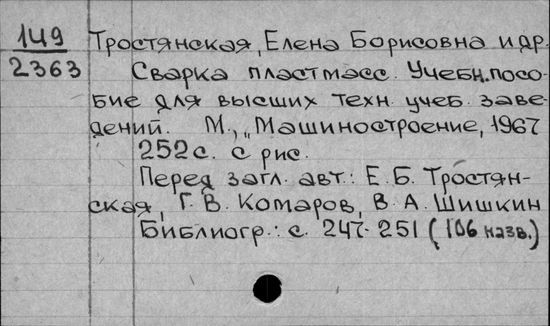 149
2363
Тростянская, Елена Борисовна и др.
Сварка пластмасс. Учебн. посо-
бие для высших техн. учеб. заве-
дений. М., „Машиностроение, 1967
252 с. с рис.
Перед загл. авт.: Е. Б. Тростян-
ская, Г. В. Комаров, В. А. Шишкин
Библиогр.: с. 247-251 (106 назв.)